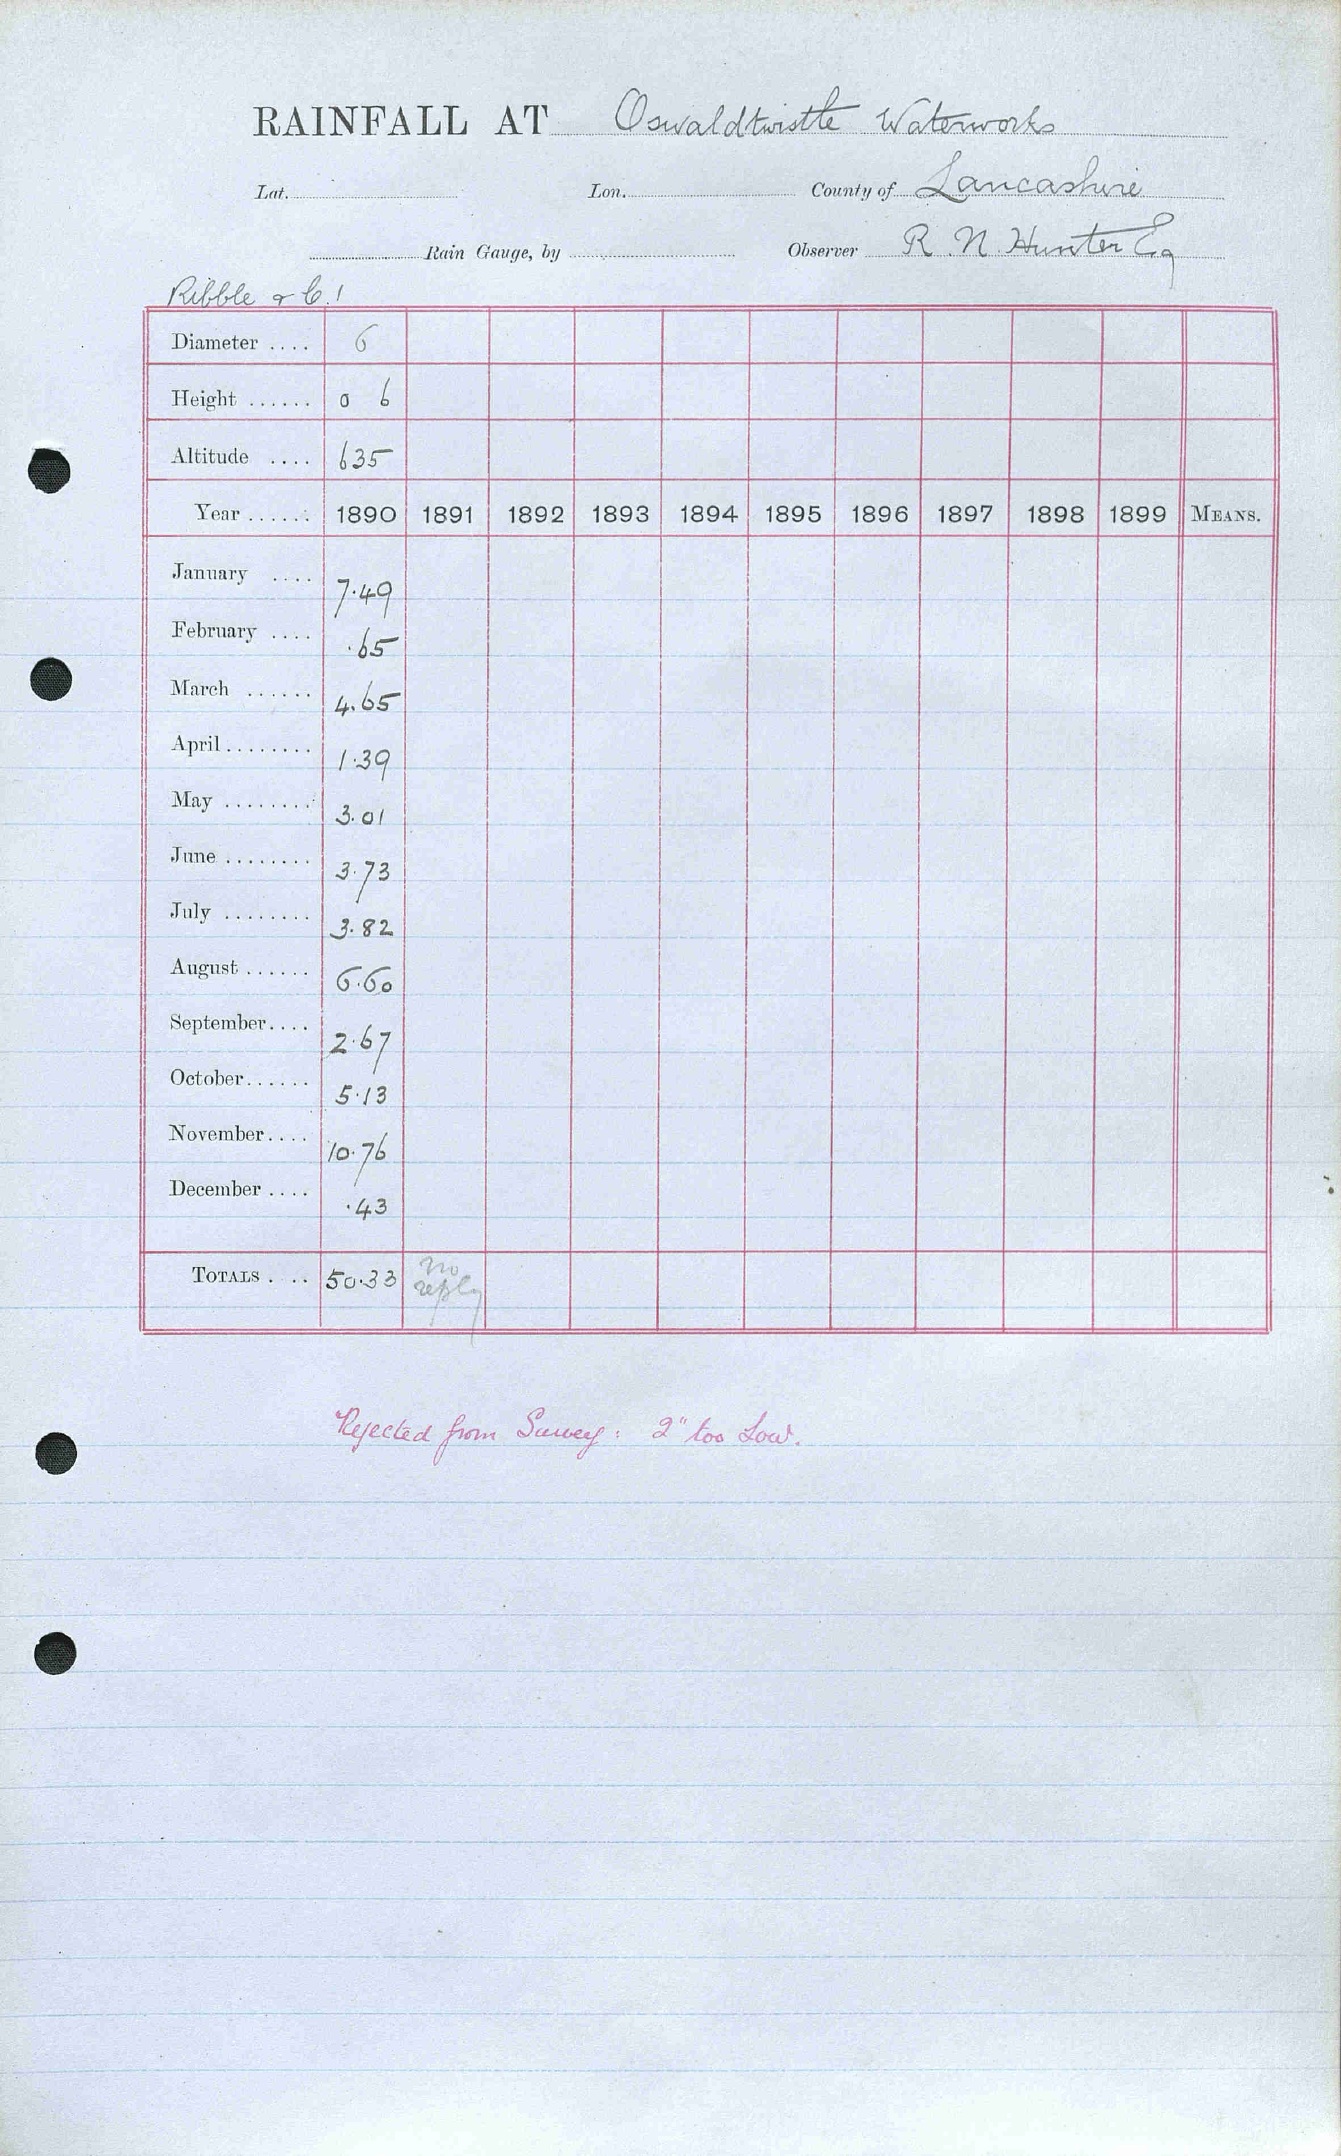 RAINFALL AT Oswaldtwistle Waterworks
Lat. Lon. County of Lancashire
Rain Gauge, by Observer R. N. Hunter Esq
Ribble &
Diameter .... 6
Height ...... 0 6
Altitude .... 635
Year ...... 1890 1891 1892 1893 1894 1895 1896 1897 1898 1899 MEANS.
January .... 7.49
February .... .65
March ...... 4.65
April ........ 1.39
May ........ 3.01
June ........ 3.73
July ........ 3.82
August ...... 6.60
September.... 2.67
October...... 5.13
November.... 10.76
December .... .43
TOTALS . .. 50.33 no reply
Rejected from Survey: 2" too Low.